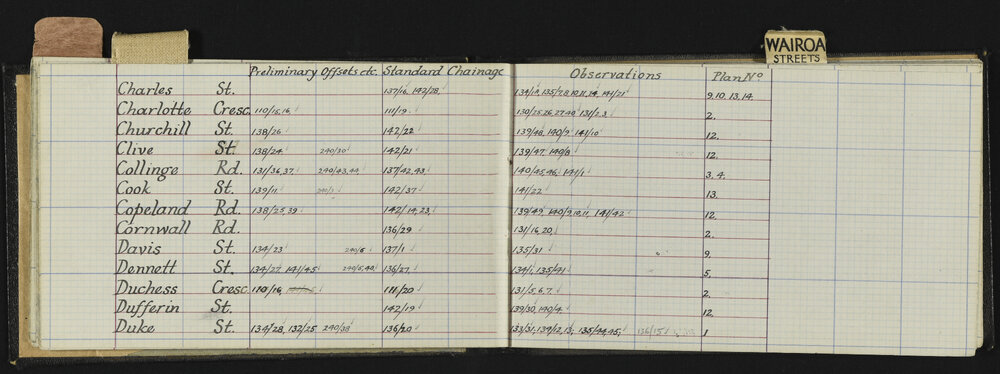 WAIROA
STREETS
Preliminary Offsets etc. Standard Chainage Observations Plan No
Charles St. 137/16, 142/28, 134/14, 135/7,8,10,11,14, 141/21 9, 10, 13, 14.
Charlotte Cresc. 110/15,16, 111/19 130/25,26,27,49, 131/2,3, 2.
Churchill St. 138/26 142/22 139/48, 140/9, 141/10 12.
Clive St. 138/24 240/30 142/21 139/47, 140/8 12.
Collinge Rd. 131/36,37, 240/43,44 137/42,43, 140/45,46, 141/1 3, 4.
Cook St. 139/11 142/37 141/22 13.
Copeland Rd. 138/25,39 142/14,23, 139/49, 140/9,10,11, 141/42 12.
Cornwall Rd. 136/29 131/16,20, 2.
Davis St. 134/23 240/6 137/1 135/31 9.
Dennett St. 134/27, 141/45 240/5,40 136/27, 134/1, 135/41 5.
Duchess Cresc. 110/16, 111/20 131/5,6,7, 2.
Dufferin St. 142/19 139/30, 140/4, 12.
Duke St. 134/28, 132/25 240/38 136/20 133/31, 134/12,13, 135/44,45, 136/15 1